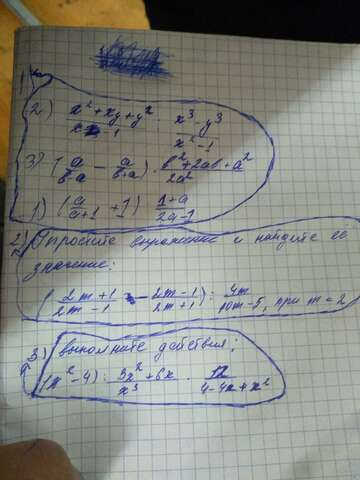 1)
2) (x² + xy + y²)/(x - 1) · (x³ - y³)/(x² - 1)
3) (a/(b-a) - a/(b+a)) · (b² + 2ab + a²)/(2a²)
1) (a/(a+1) + 1) · (1+a)/(2a-1)
2) Упростите выражение и найдите ее
значение:
((2m+1)/(2m-1) - (2m-1)/(2m+1)) : 4m/(10m-5), при m = 2
3) выполните действия;
(x² - 4) : (3x² + 6x)/x³ · 12/(4-4x+x²)